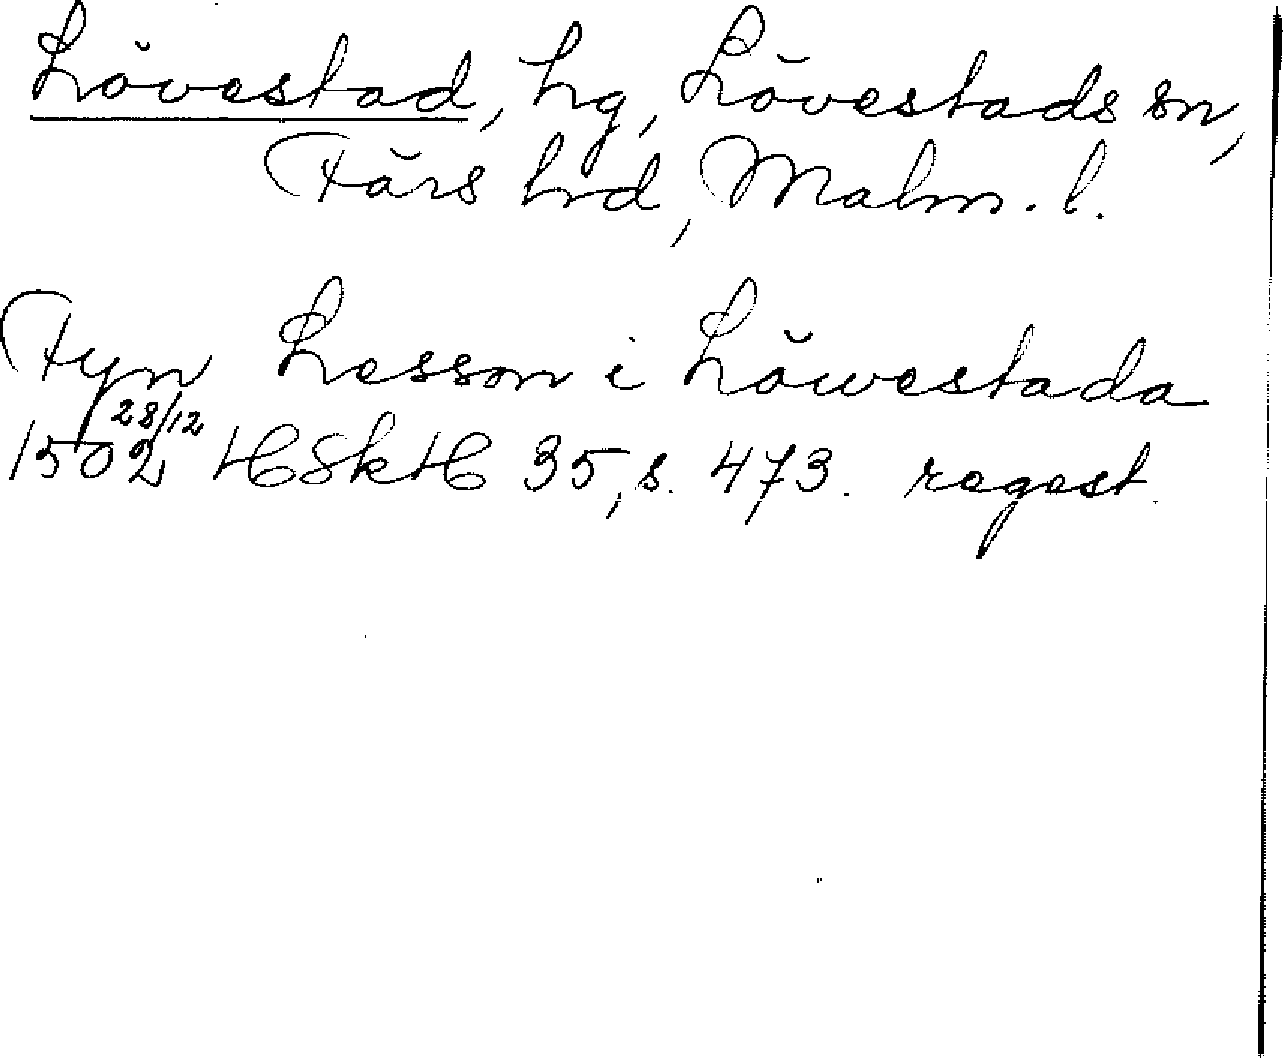 Lövestad, hg, Lövestads sn,
Färs hd, Malm. l.
Fyn Lesson i Löwestada
28/12
1502 HSkH 35, s. 473. regest.